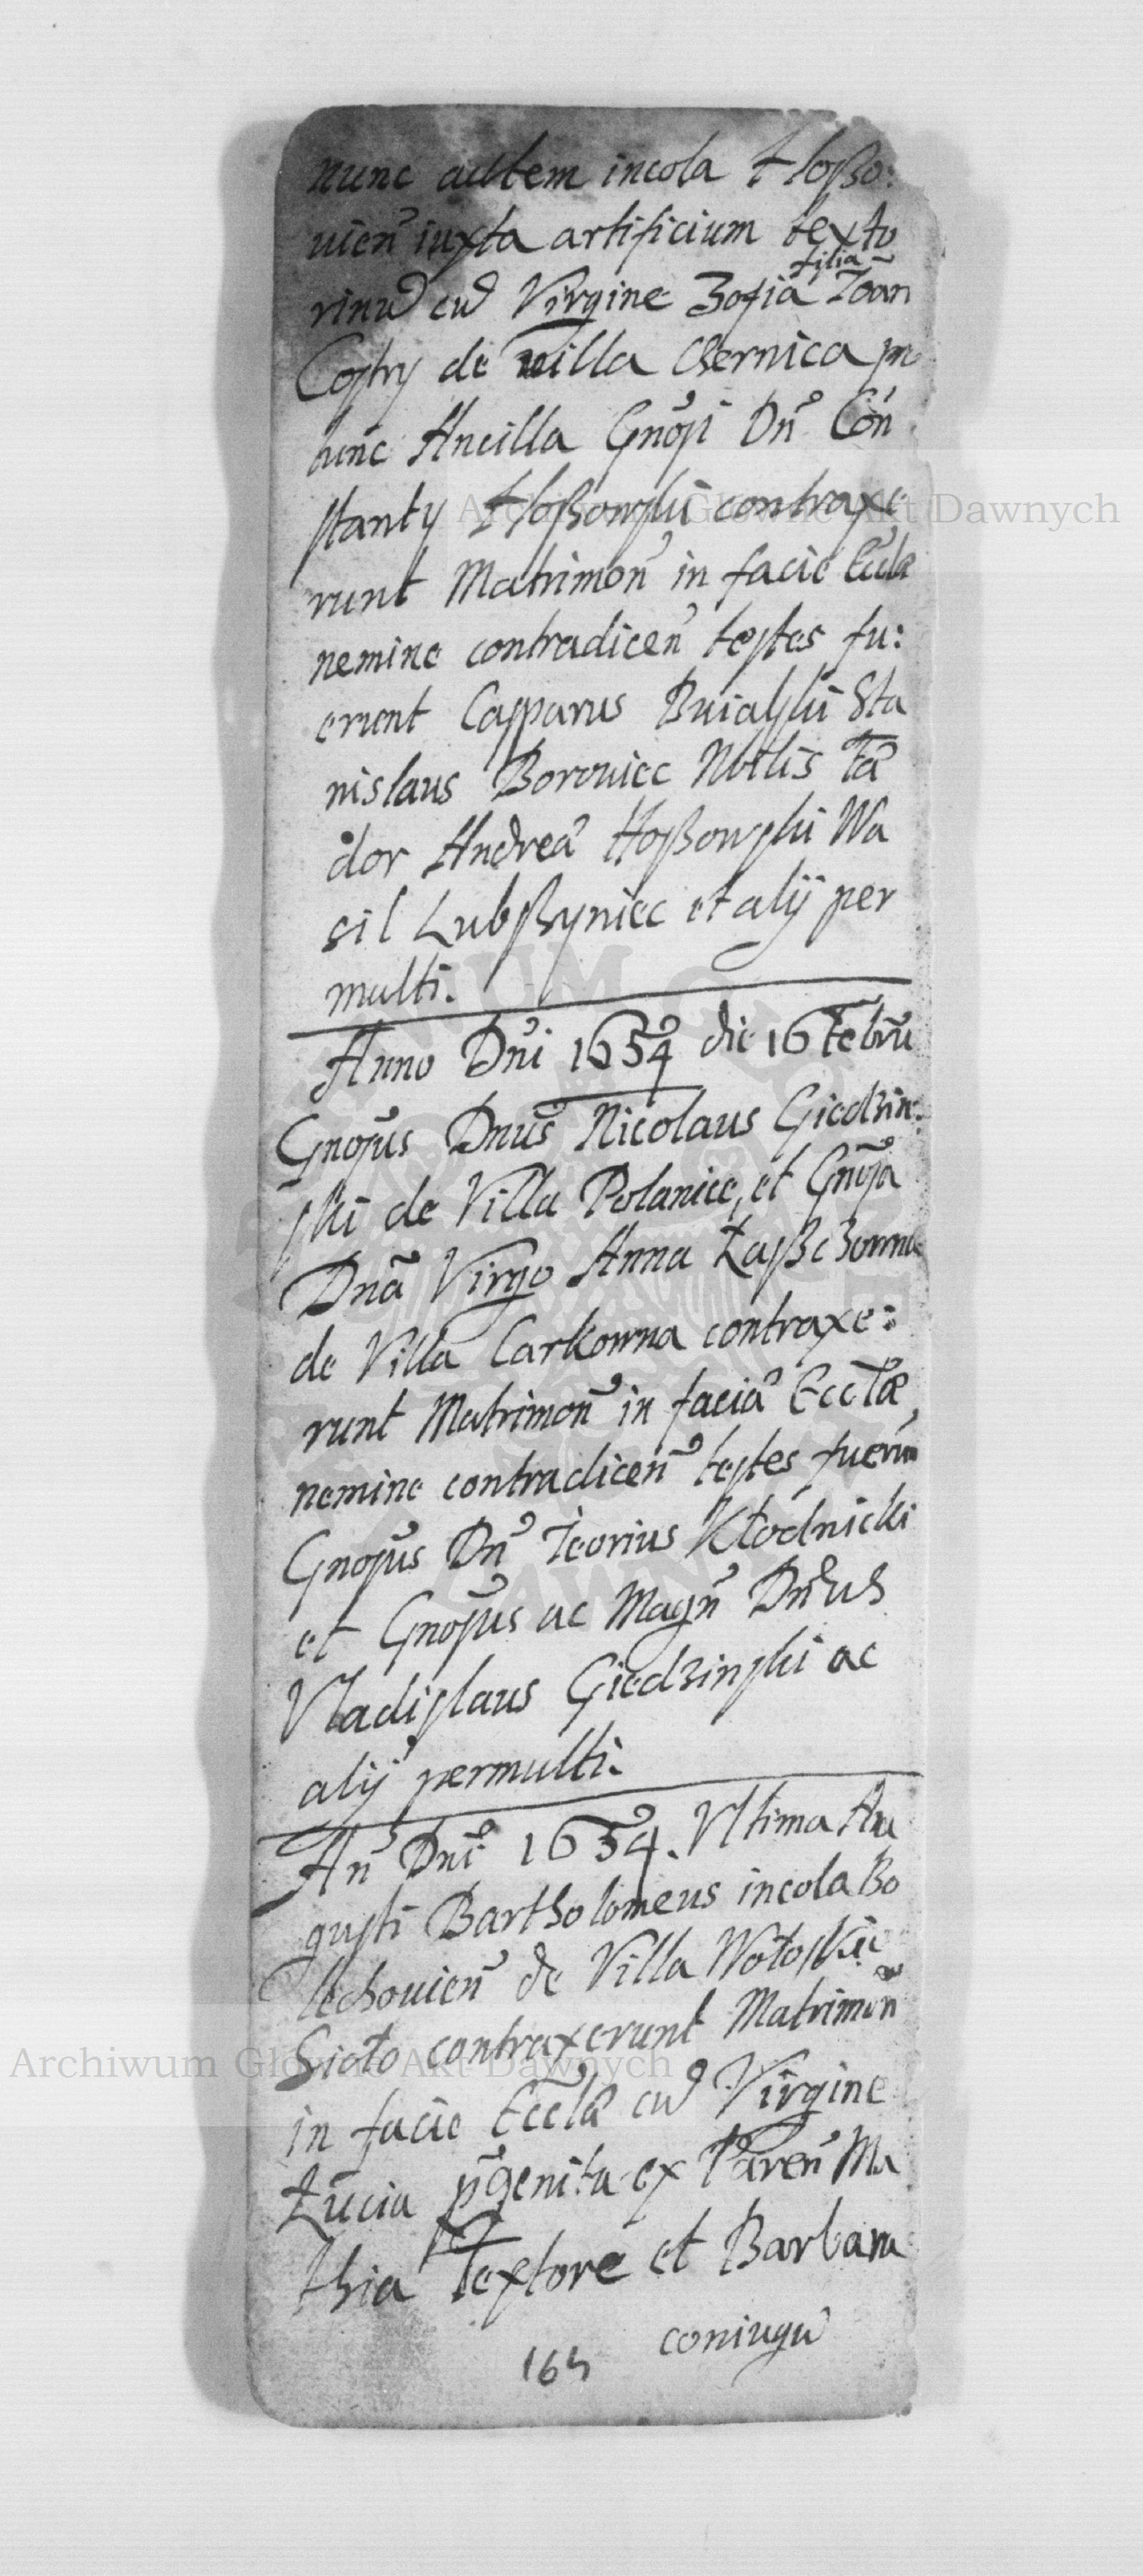 nunc autem incola Hoſßo:
uien̉ iuxta artificium texto
rinũ cũ Virgine Zofia filia Ioan
Coſtry de uilla Czernica pro
tunc Ancilla Gnoſi Dn̉ Con
ſtanty Hoſßowſki contraxe
runt Matrimon̉ in facie Eccle
nemine contradicen̉ teſtes fu:
erunt Caſparus Buialſki Sta
nislaus Borouiec Nobilis
Andrea Hoſßowſki Wa
sil Lubſzyniec et alij per
multi.
Anno Dn̉i 1654 die 16 Febru
Gnoſus Dnus Nicolaus Giedzin:
ſki de Villa Polaniec, et Gnoſa
Dnã Virgo Anna Łaſßczowna
de Villa Carkowna contraxe:
runt Matrimon̉ in faciã Ecclæ,
nemine contradicen̉ teſtes fuerun
Gnoſus Dn̉ Ieorius Kłodnicki
et Gnoſus ac Magn̉ Dn̉us
Vladiſlaus Giedzinſki ac
alij permulti.
An̉ Dn̉i 1654. Vltima Au
guſti Bartholomeus incola Bo
lechouien̉ de Villa Wołoſkie
Sioło contraxerunt Matrimon̉
in facie Ecclã cũ Virgine
Łucia p̃genita ex Paren̉ Ma
thia Textore et Barbara
coniugũ
165
Archiwum Główne Akt Dawnych
Archiwum Główne Akt Dawnych